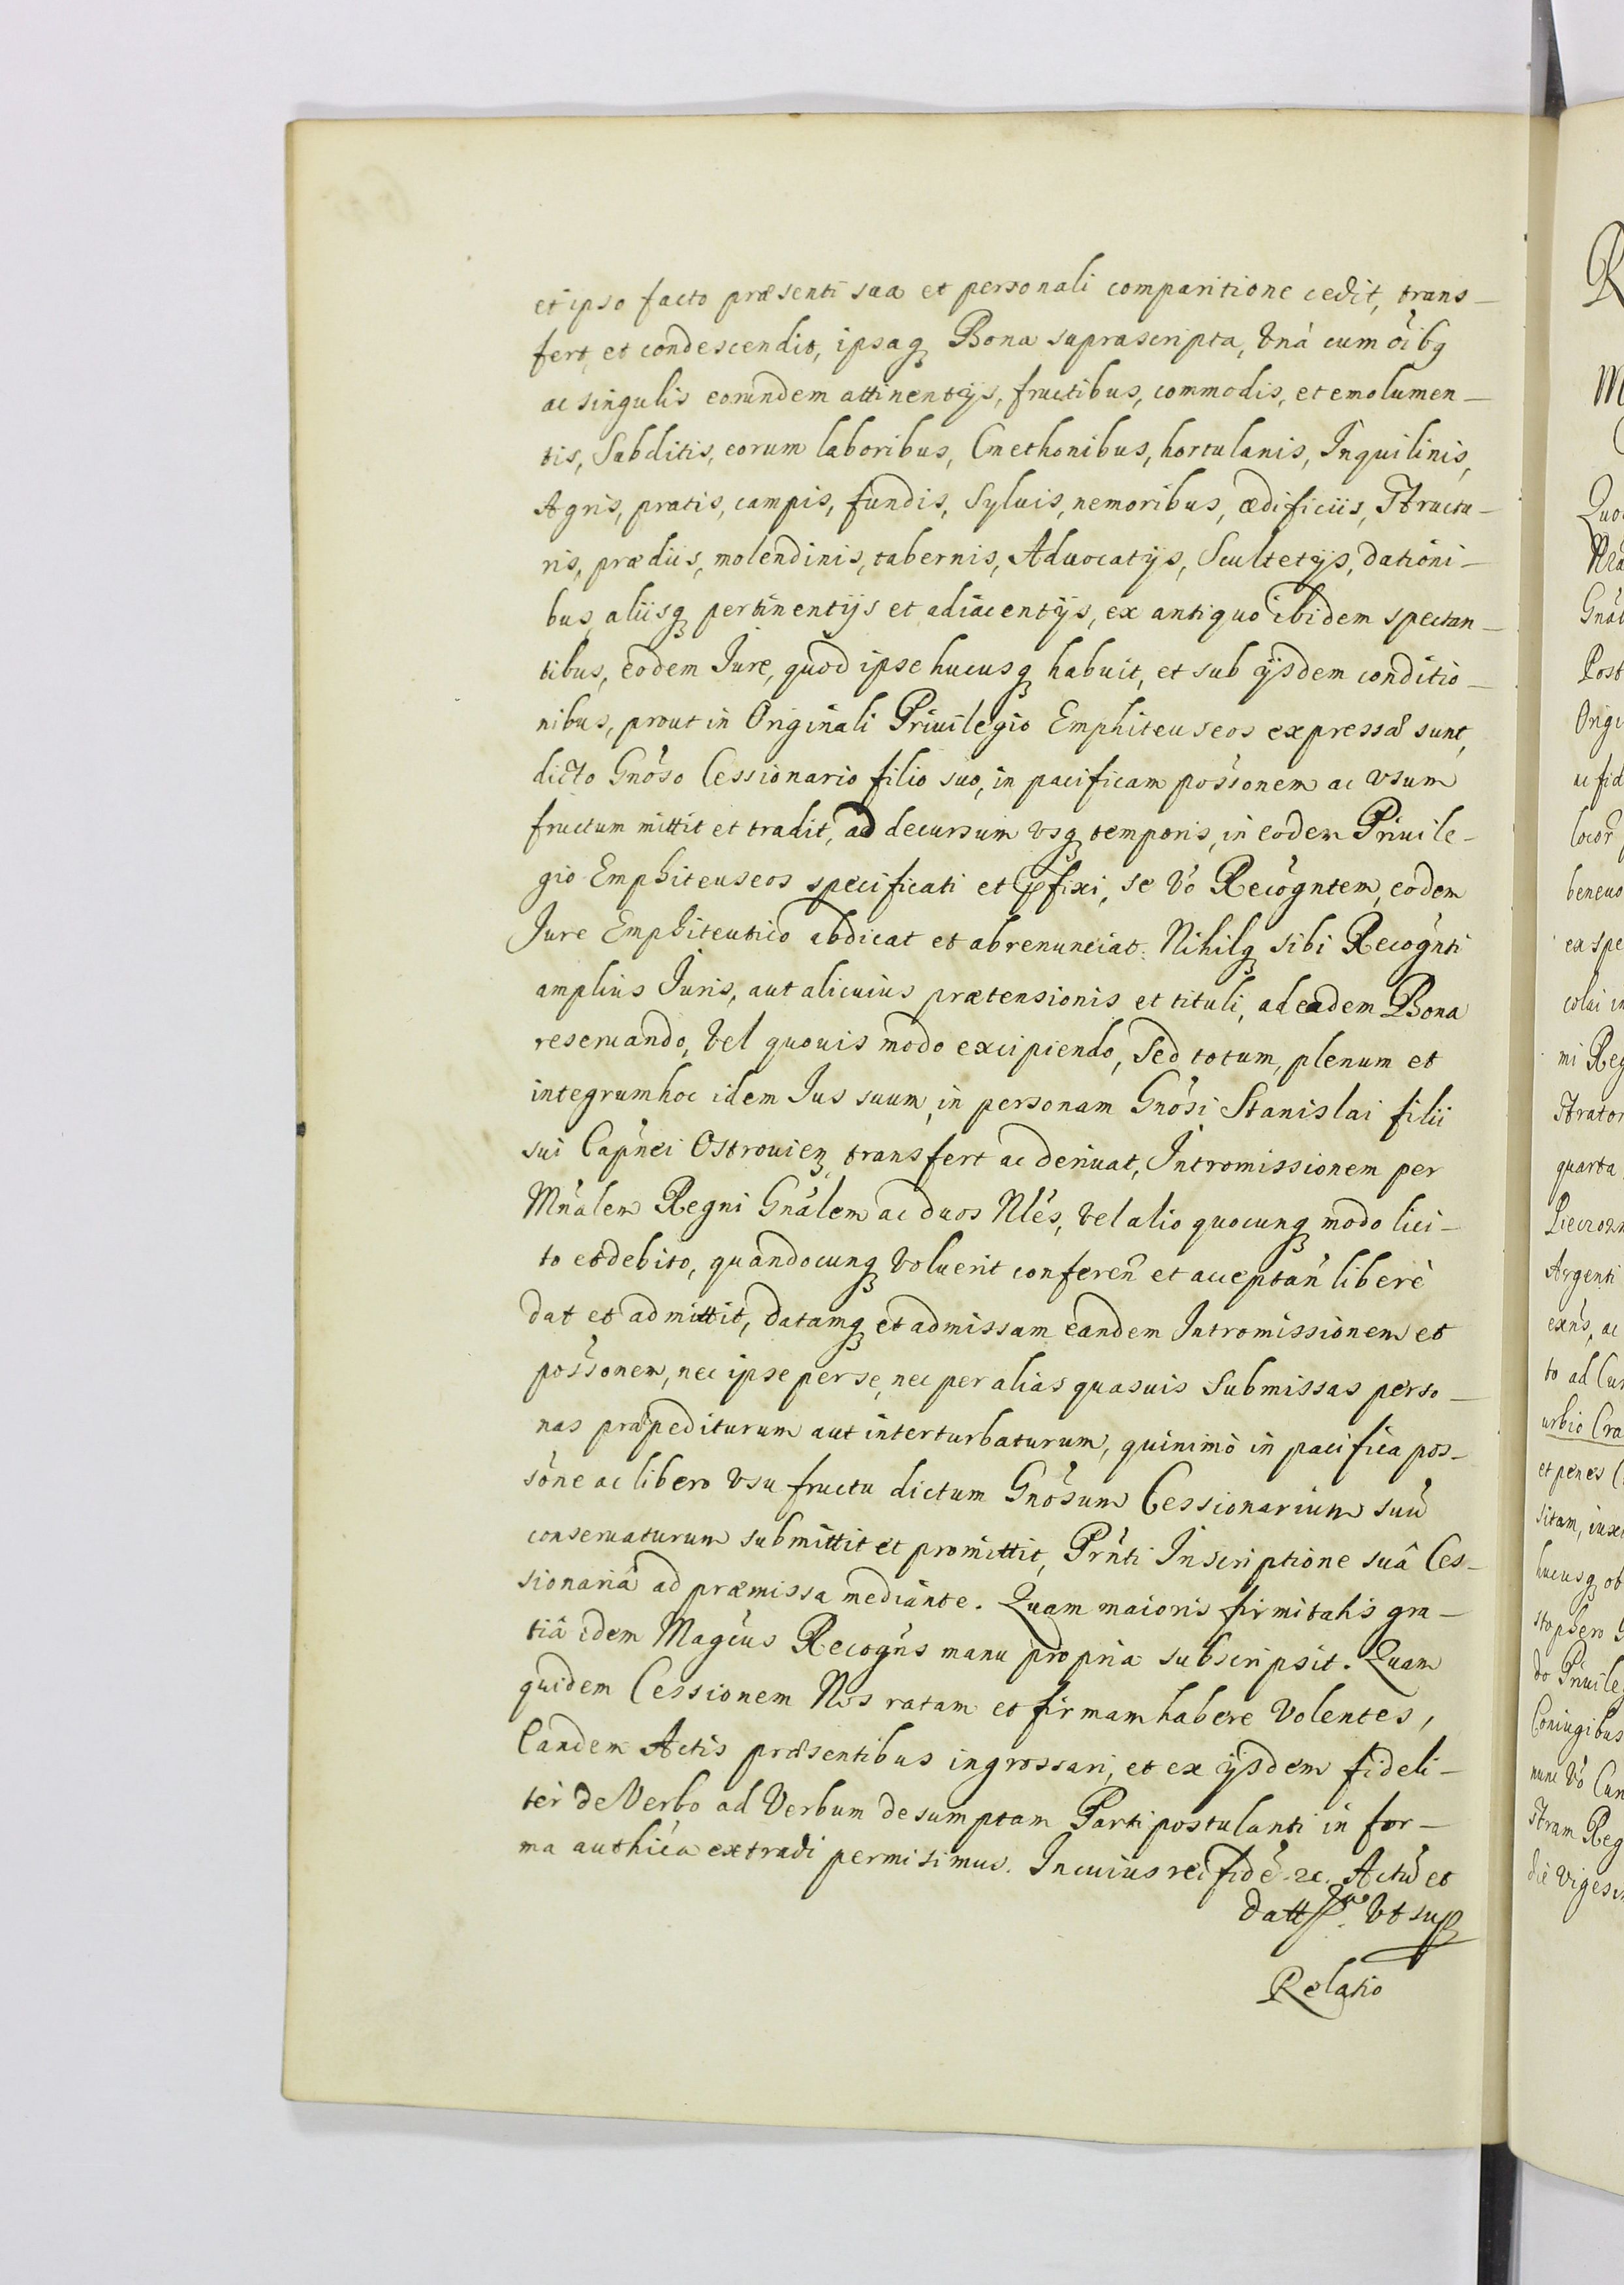 et ipso facto præsenti sua et personali comparitione cedit, trans-
fert, et condescendit, ipsaq́ Bona suprascripta, Vnà cum õibq
ac singulis eorundem attinentijs, fructibus, commodis, et emolumen-
tis, Subditis, eorum laboribus, Cmethonibus, hortulanis, Inquilinis,
Agris, pratis, campis, fundis, Syluis, nemoribus, ædificiis, Structu-
ris, prædiis, molendinis, tabernis, Aduocatijs, Scultetijs, dationi-
bus, aliisq́ pertinentijs et adiacentijs, ex antiquo ibidem spectan-
tibus, eodem Iure, quod ipse hucusq́ habuit, et sub ijsdem conditio-
nibus, prout in Originali Priuilegio Emphiteuseos expressæ sunt,
dicto Gnõso Cessionario filio suo, in pacificam possõnem ac vsum
fructum mittit et tradit, ad decursum vsq́ temporis, in eodem Priuile-
gio Emphiteuseos specificati et p̃fixi, se Võ Recogñtem, eodem
Iure Emphiteutico abdicat et abrenunciat. Nihilq́ sibi Recogñti
amplius Iuris, aut alicuius prætensionis et tituli, ad eadem Bona
reseruando, vel quouis modo excipiendo, Sed totum, plenum et
integrum hoc idem Ius suum, in personam Gnõsi Stanislai filii
sui Capñei Ostrouień transfert ac deriuat, Intromissionem per
Mñalem Regni Gnãlem ac duos Nlẽs, vel alio quocunq́ modo lici-
to et debito, quandocunq́ Voluerit conferen̄ et acceptan̄ liberè
dat et admittit, datamq́ et admissam eandem Intromissionem et
possõnem, nec ipse per se, nec per alias quasuis Submissas perso-
nas præpediturum aut interturbaturum, quinimò in pacifica pos-
sõne ac libero vsu fructu dictum Gnõsum Cessionarium suũ
conseruaturum submittit et promittit, Prñti Inscriptione suâ Ces-
sionariâ ad præmissa mediante. Quam maioris firmitatis gra-
tiâ idem Magc̃us Recogñs manu propria subscripsit. Quam
quidem Cessionem Nos ratam et firmam habere Volentes,
Eandem Actis præsentibus ingrossari, et ex ijsdem fideli-
tèr de Verbo ad Verbum desumptam Parti postulanti in for-
ma authic̃a extradi permisimus. In cuius rei fidẽ &c. Actũ et
Datt Vt sup
Relatio